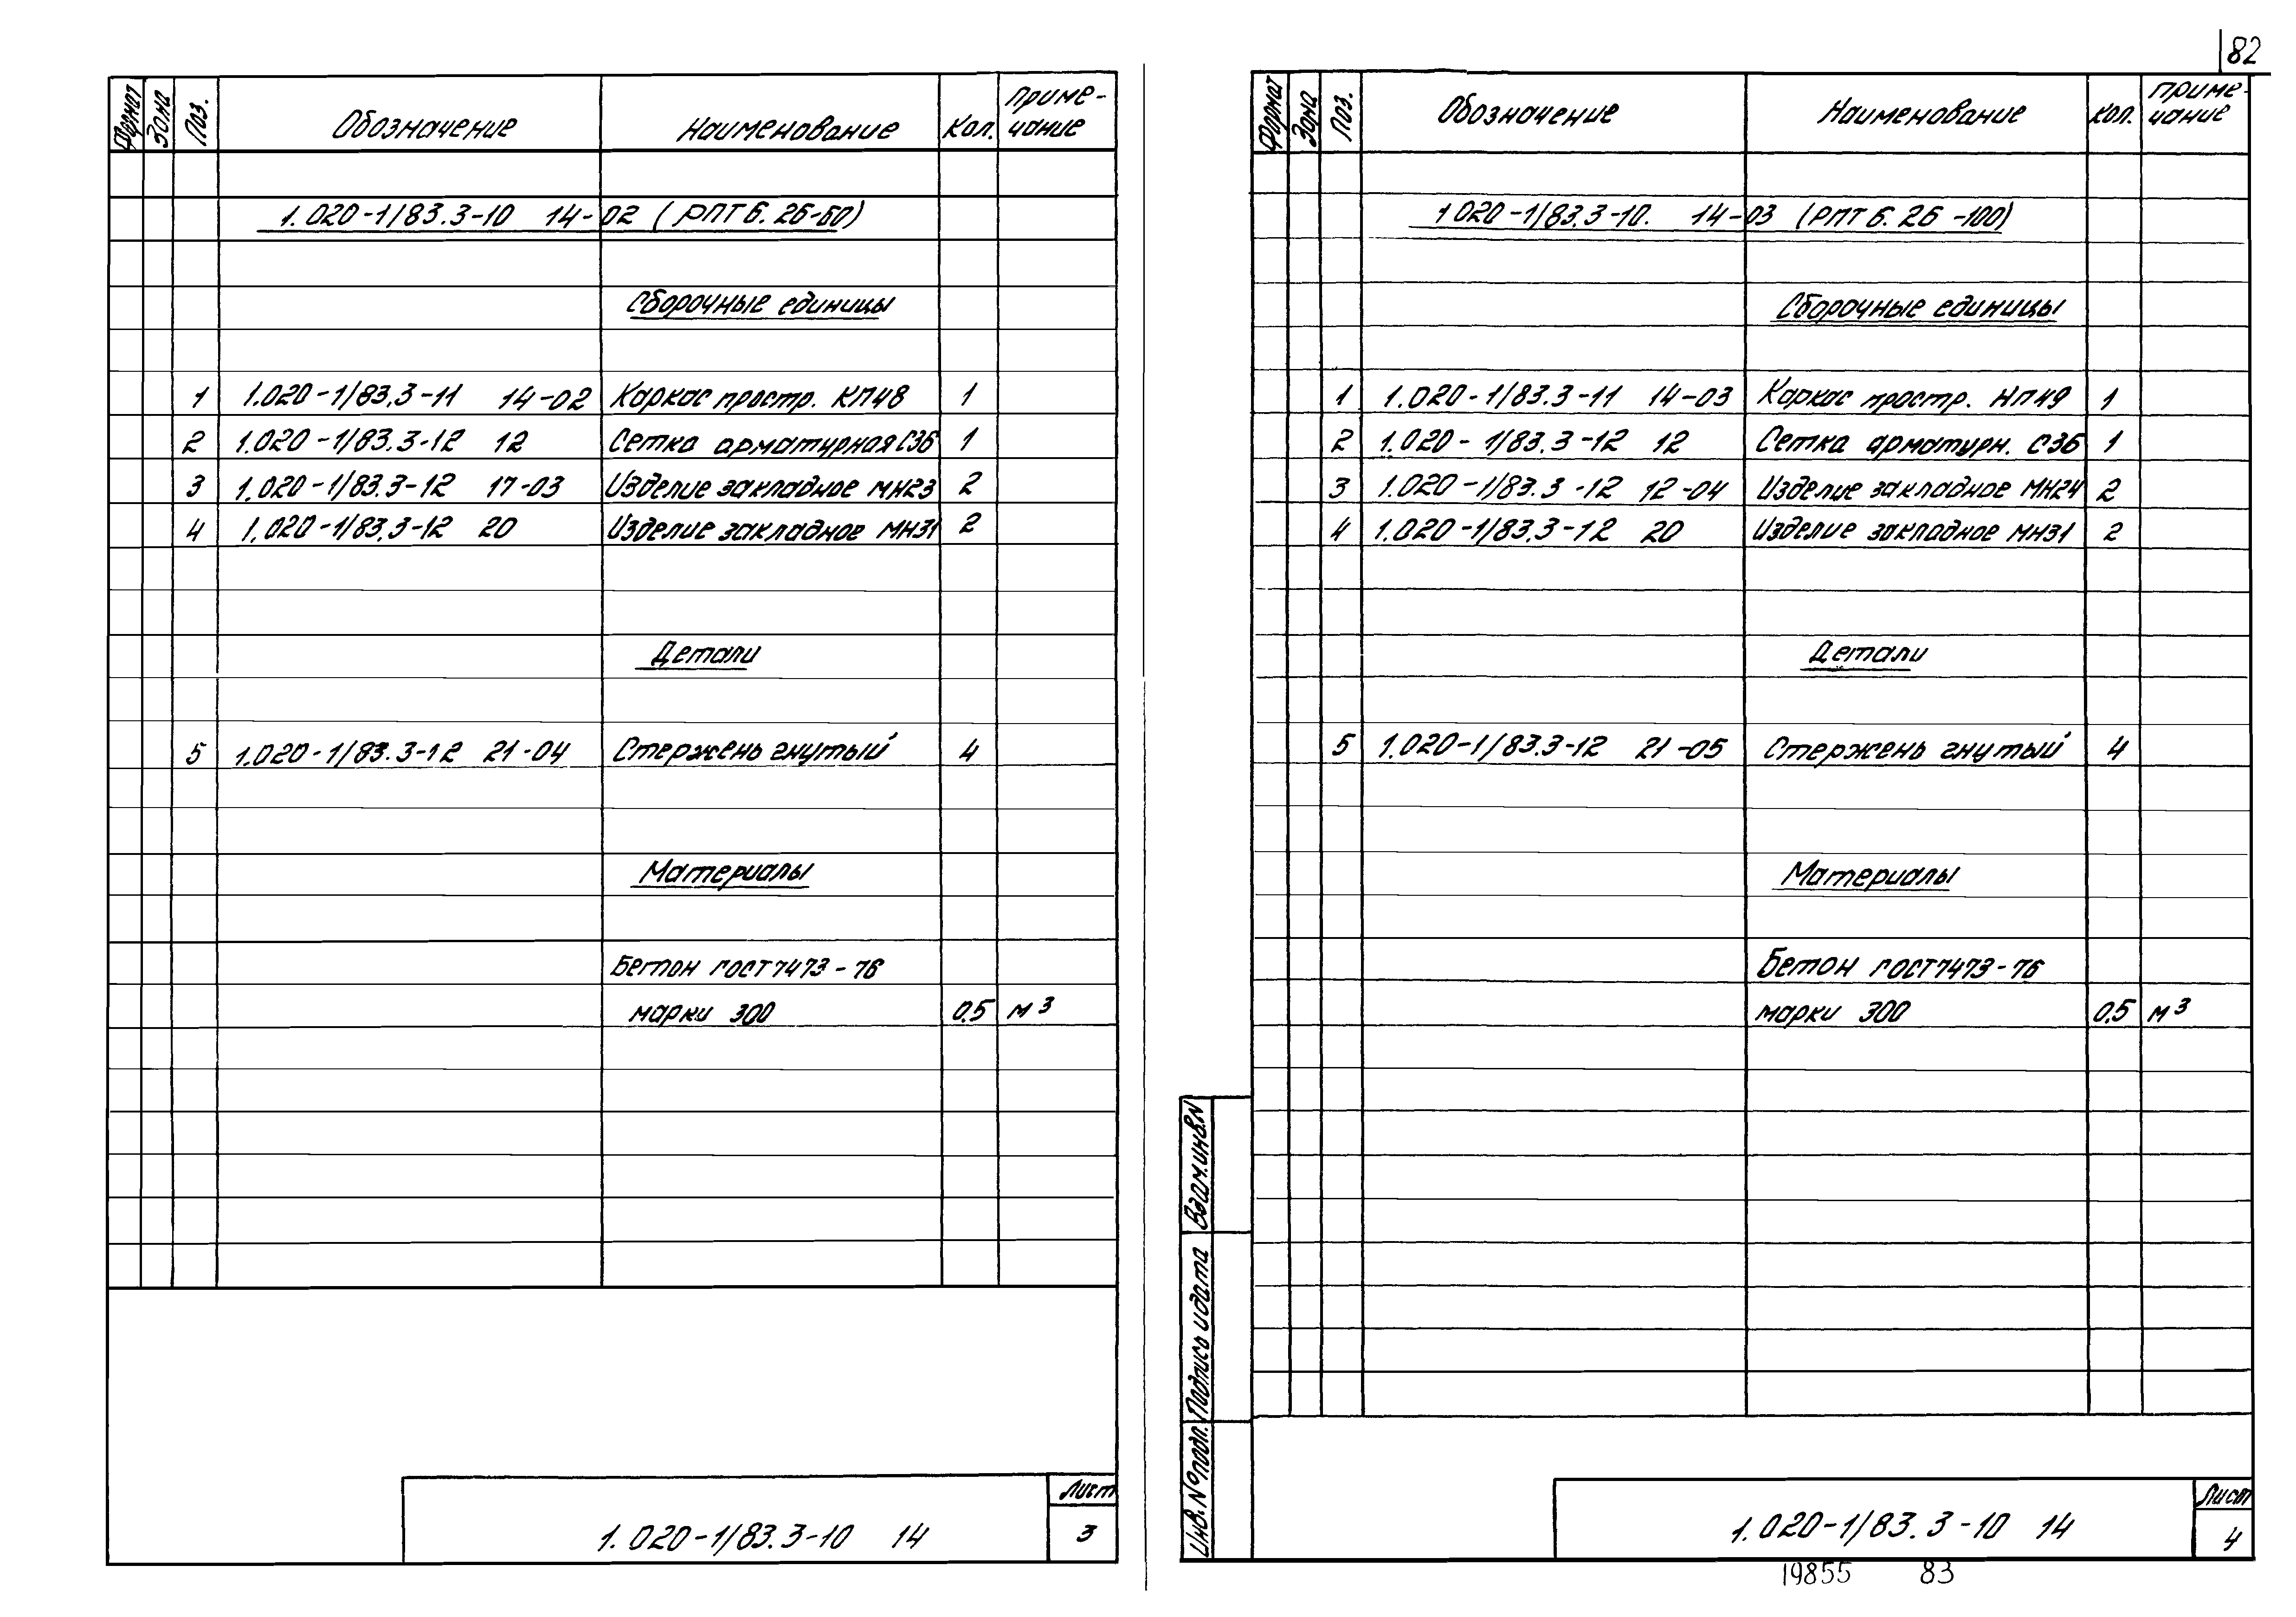 82
Формат Зона Поз. Обозначение Наименование Кол. Приме-
чание
1.020-1/83.3-10 14-02 (РПТ 6.26-60)
Сборочные единицы
1 1.020-1/83.3-11 14-02 Каркас простр. КП48 1
2 1.020-1/83.3-12 12 Сетка арматурная С36 1
3 1.020-1/83.3-12 17-03 Изделие закладное МН23 2
4 1.020-1/83.3-12 20 Изделие закладное МН31 2
Детали
5 1.020-1/83.3-12 21-04 Стержень гнутый 4
Материалы
Бетон ГОСТ 7473-76
марки 300 0.5 м³
Лист
1.020-1/83.3-10 14 3
Формат Зона Поз. Обозначение Наименование Кол. Приме-
чание
1.020-1/83.3-10. 14-03 (РПТ 6.26-100)
Сборочные единицы
1 1.020-1/83.3-11 14-03 Каркас простр. НП49 1
2 1.020-1/83.3-12 12 Сетка арматурн. С36 1
3 1.020-1/83.3-12 12-04 Изделие закладное МН24 2
4 1.020-1/83.3-12 20 Изделие закладное МН31 2
Детали
5 1.020-1/83.3-12 21-05 Стержень гнутый 4
Материалы
Бетон ГОСТ 7473-76
марки 300 0.5 м³
Взам.инв.N
Подпись и дата
Инв. N° подл.
Лист
1.020-1/83.3-10 14 4
19855 83